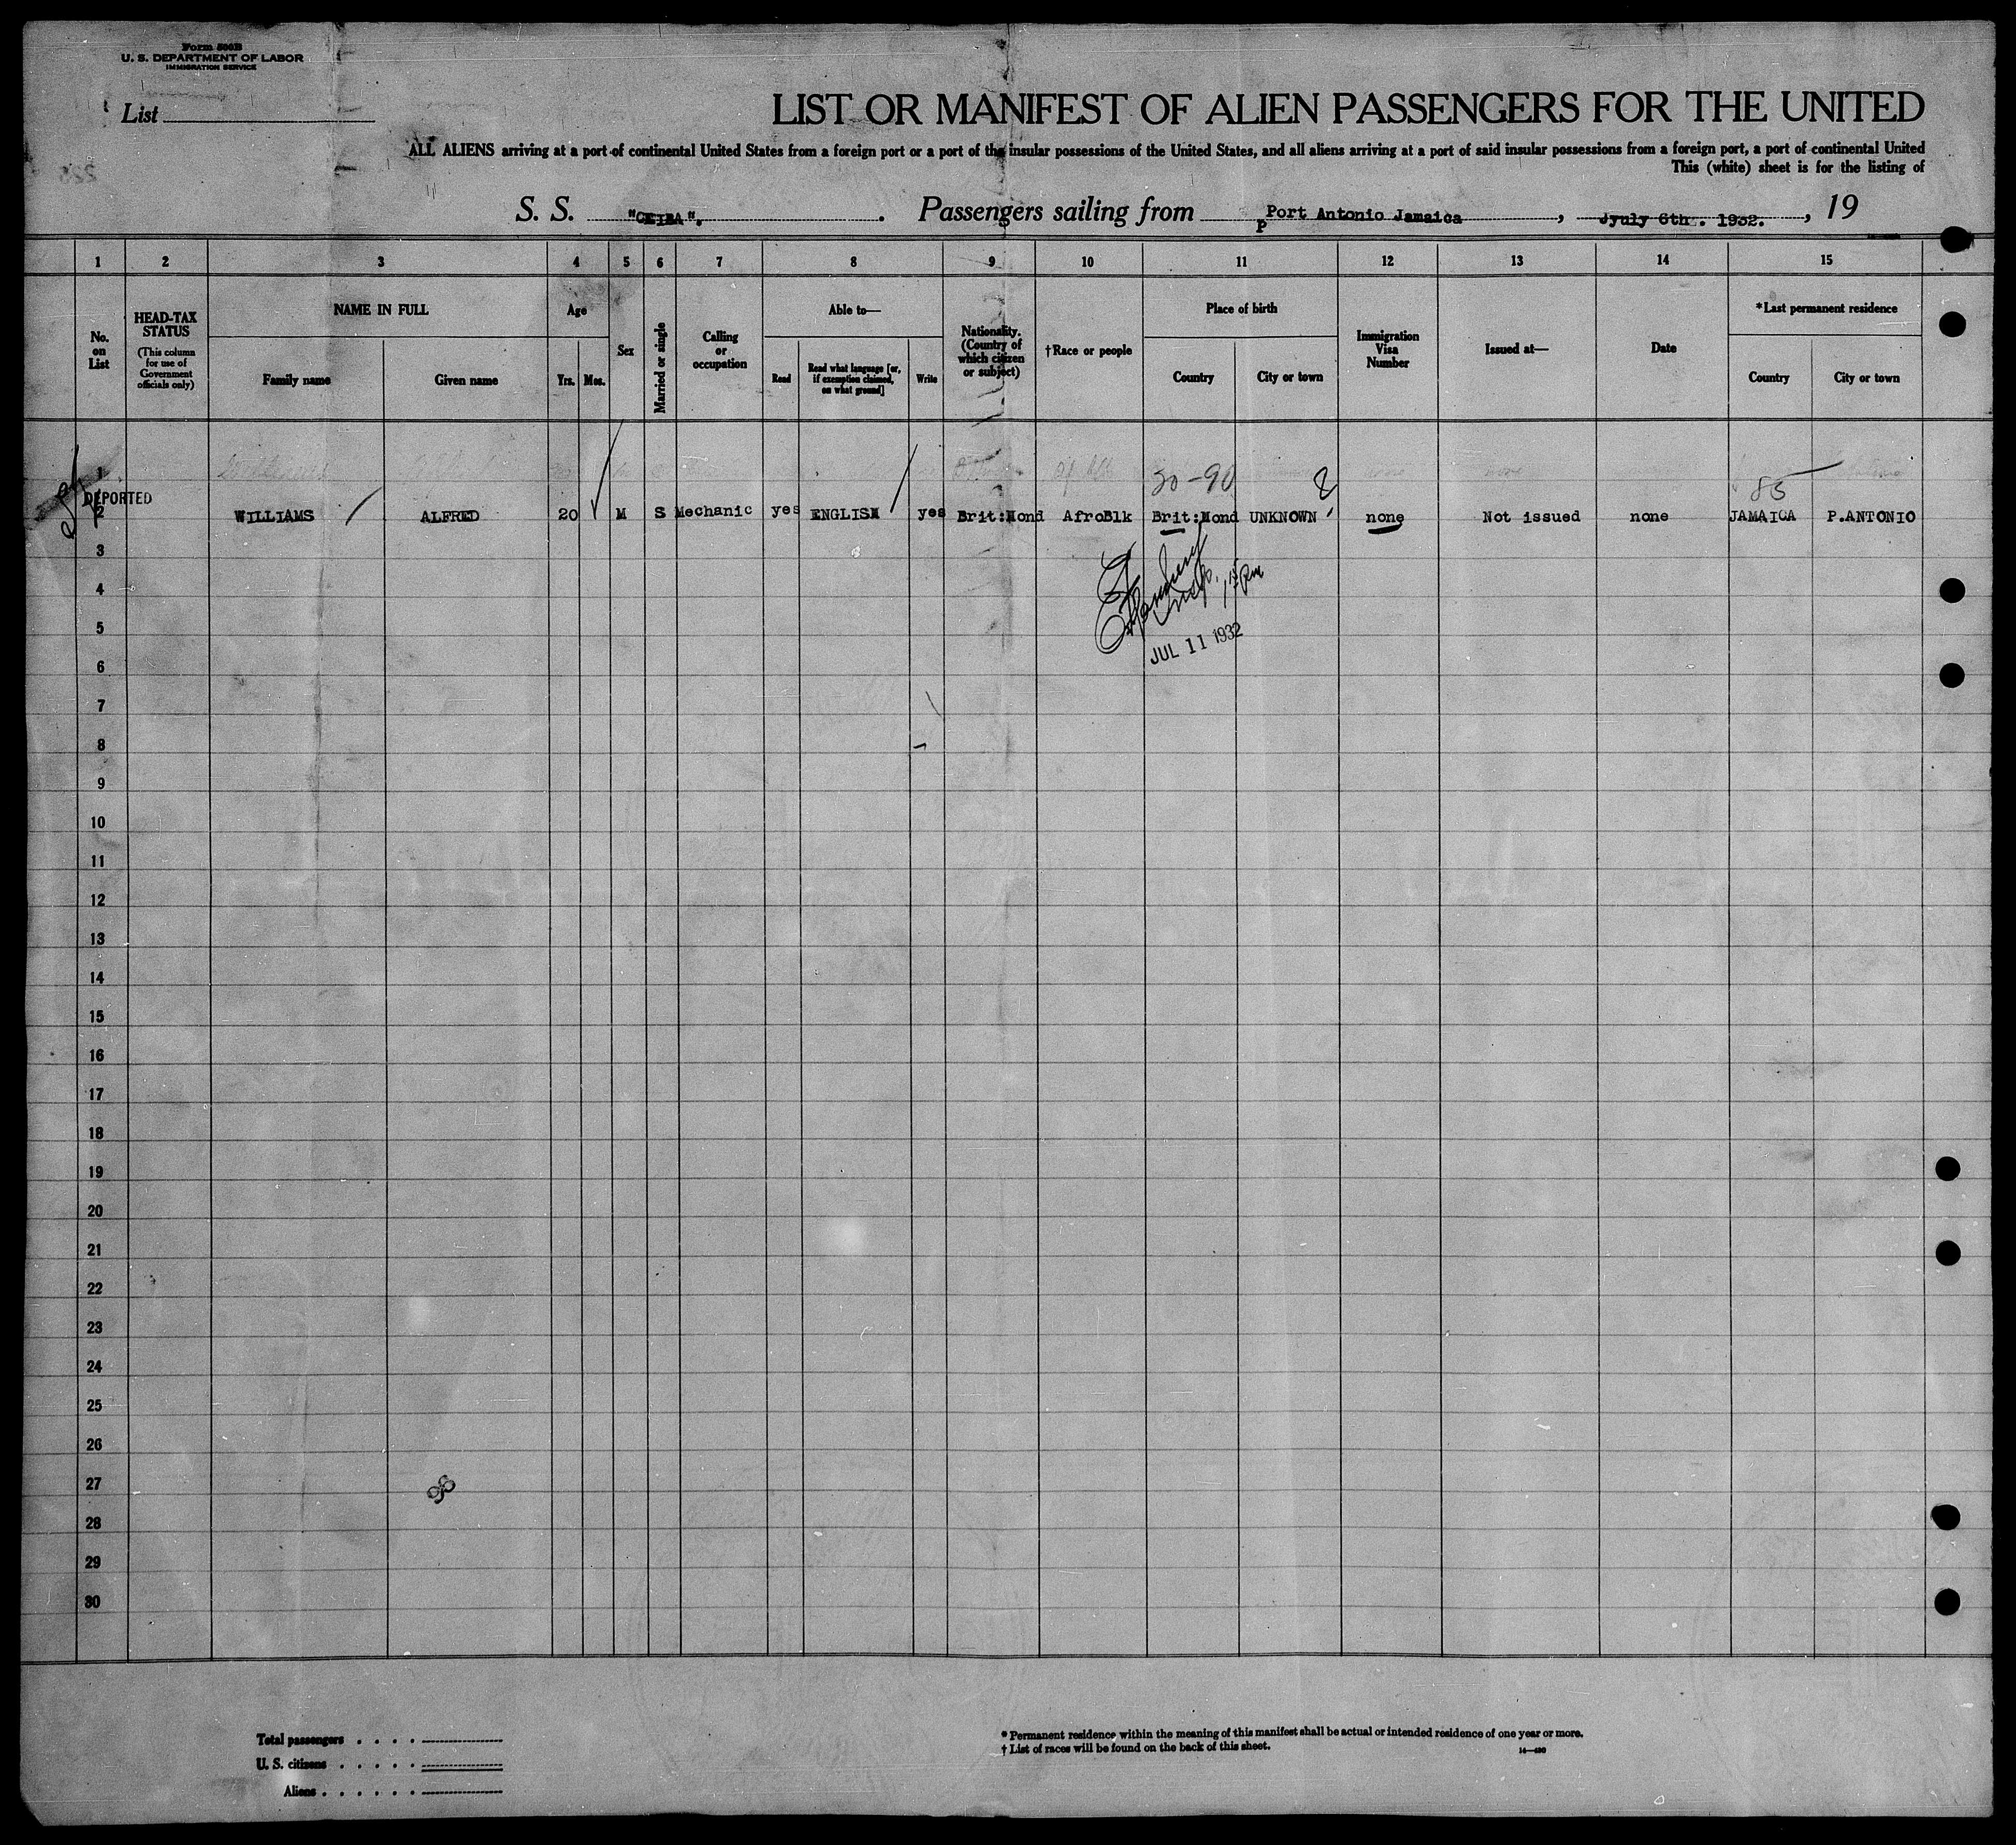 Form 500B
U. S. DEPARTMENT OF LABOR
IMMIGRATION SERVICE
List
LIST OR MANIFEST OF ALIEN PASSENGERS FOR THE UNITED
ALL ALIENS arriving at a port of continental United States from a foreign port or a port of the insular possessions of the United States, and all aliens arriving at a port of said insular possessions from a foreign port, a port of continental United
This (white) sheet is for the listing of
S. S. "CEIBA". . Passengers sailing from Port Antonio Jamaica , Jyuly 6th. 1932. , 19
P
1 2 3 4 5 6 7 8 9 10 11 12 13 14 15
No. on List
HEAD-TAX STATUS
(This column for use of Government officials only)
NAME IN FULL
Family name
Given name
Age
Yrs. Mos.
Sex
Married or single
Calling or occupation
Able to—
Read
Read what language [or, if exemption claimed, on what ground]
Write
Nationality. (Country of which citizen or subject)
†Race or people
Place of birth
Country
City or town
Immigration Visa Number
Issued at—
Date
*Last permanent residence
Country
City or town
1
30-90
85
DEPORTED
2 WILLIAMS ALFRED 20 M S Mechanic yes ENGLISH yes Brit:Hond AfroBlk Brit:Hond UNKNOWN none Not issued none JAMAICA P.ANTONIO
3
4
5
JUL 11 1932
6
7
8
9
10
11
12
13
14
15
16
17
18
19
20
21
22
23
24
25
26
27
28
29
30
Total passengers . . . .
U. S. citizens . . . . .
Aliens . . . . . .
* Permanent residence within the meaning of this manifest shall be actual or intended residence of one year or more.
† List of races will be found on the back of this sheet.
14—430